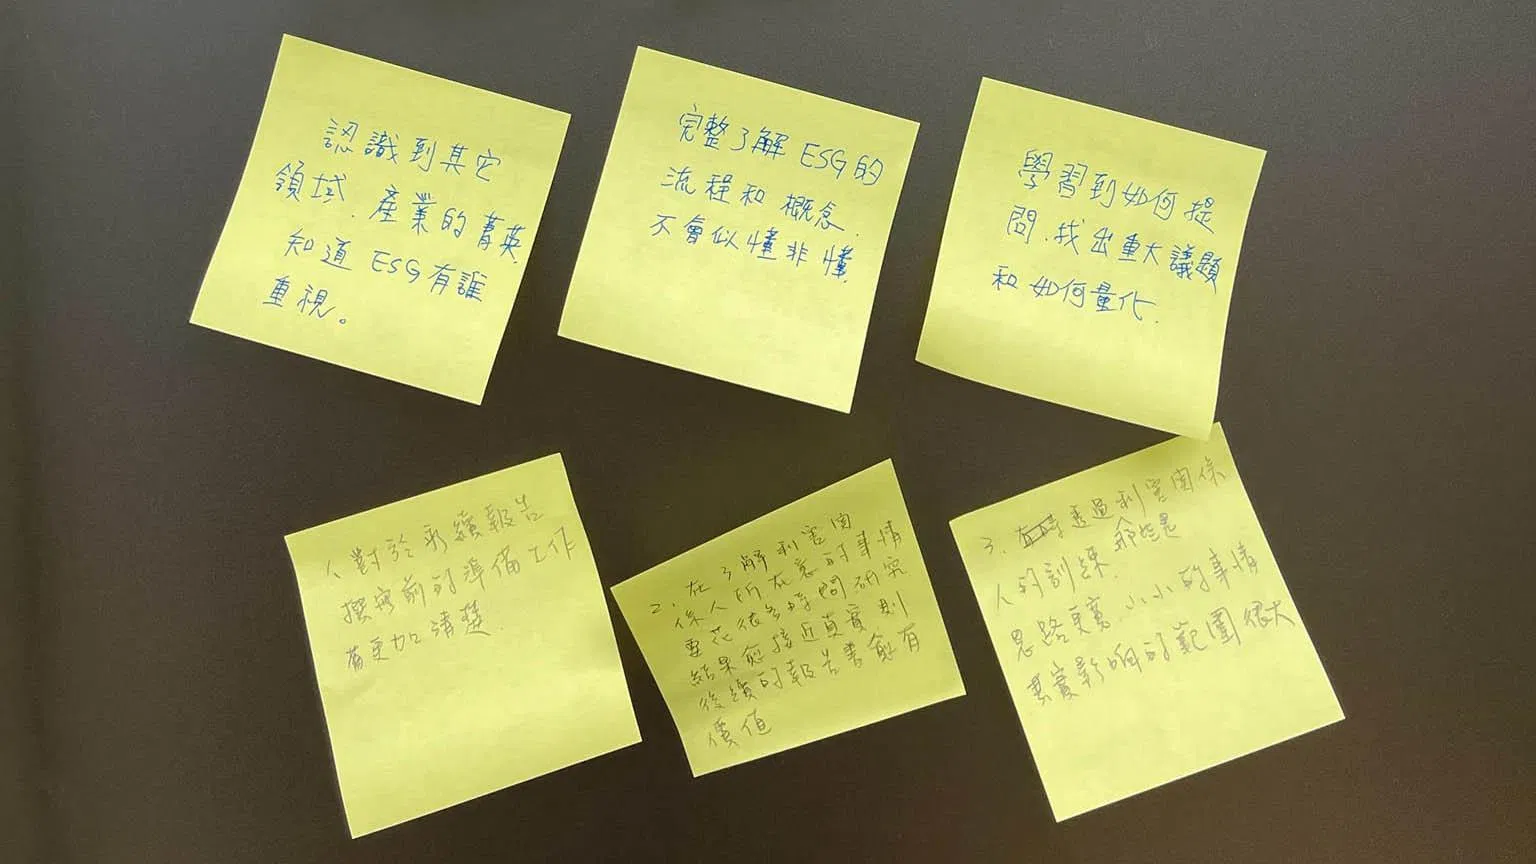 認識到其它
領域、產業的菁英,
知道 ESG 有誰
重視。
完整了解 ESG的
流程和概念,
不會似懂非懂.
學習到如何提
問、找出重大議題
和如何量化.
1、對於永續報告
撰寫前的準備工作
有更加清楚.
2. 在了解利害関
係人所在意的事情
要花很多時間研究
結果愈接近真實則
後續的報告書愈有
價值
3. 透過利害関係
人的訓練,
思路更寬,小小的事情
其實影响的範圍很大